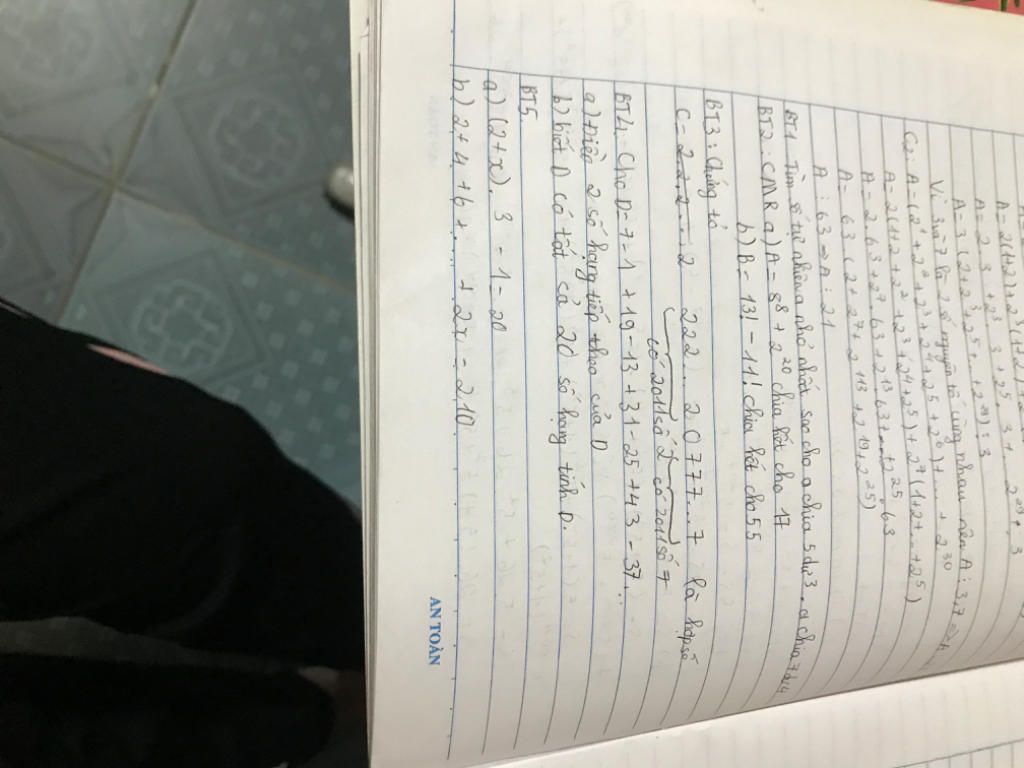 A = 2(1+2) + 2³(1+2) + 2
A = 2 . 3 + 2³ . 3 + 2⁵ . 3 + ... 2²⁹ . 3
A = 3 (2 + 2³ + 2⁵ ... + 2²⁹) ⋮ 3
Vì 3 và 7 là 2 số nguyên tố cùng nhau nên A ⋮ 3,7
Có: A = (2¹ + 2² + 2³ + 2⁴ + 2⁵ + 2⁶) + ... + 2³⁰
A = 2(1+2 + 2² + 2³ + 2⁴ + 2⁵) + 2⁷(1+2+...+2⁵)
A = 2 . 63 + 2⁷ . 63 + 2¹³ . 63 + ... + 2²⁵ . 63
A = 63 (2 + 2⁷ + 2¹¹³ + 2¹⁹ + 2²⁵)
A ⋮ 63 ⇒ A ⋮ 21
BT1 Tìm số tự nhiên a nhỏ nhất sao cho a chia 5 dư 3. a chia 7 dư 4
BT2. CMR a) A = 8⁸ + 2²⁰ chia hết cho 17
b) B = 13! - 11! chia hết cho 55
BT3: Chứng tỏ
C = 222...20777...7 là hợp số
có 2011 số 2 có 2011 số 7
BT4. Cho D = 7 - 1 + 19 - 13 + 31 - 25 + 43 - 37...
a) Điền 2 số hạng tiếp theo của D
b) biết D có tất cả 20 số hạng tính D.
BT5.
a) (2+x) . 3 - 1 = 20
b) 2 + 4 + 6 + ... + 2x = 210.
AN TOÀN